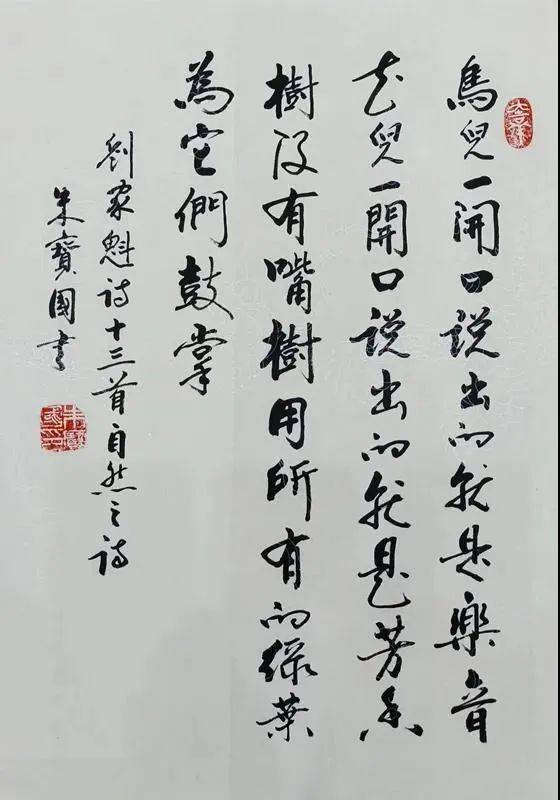 鳥兒一開口说出的就是樂音
花兒一開口说出的就是芳香
樹没有嘴樹用所有的綠葉
為它們鼓掌
劉家魁诗十三首自然之诗
朱寶國书